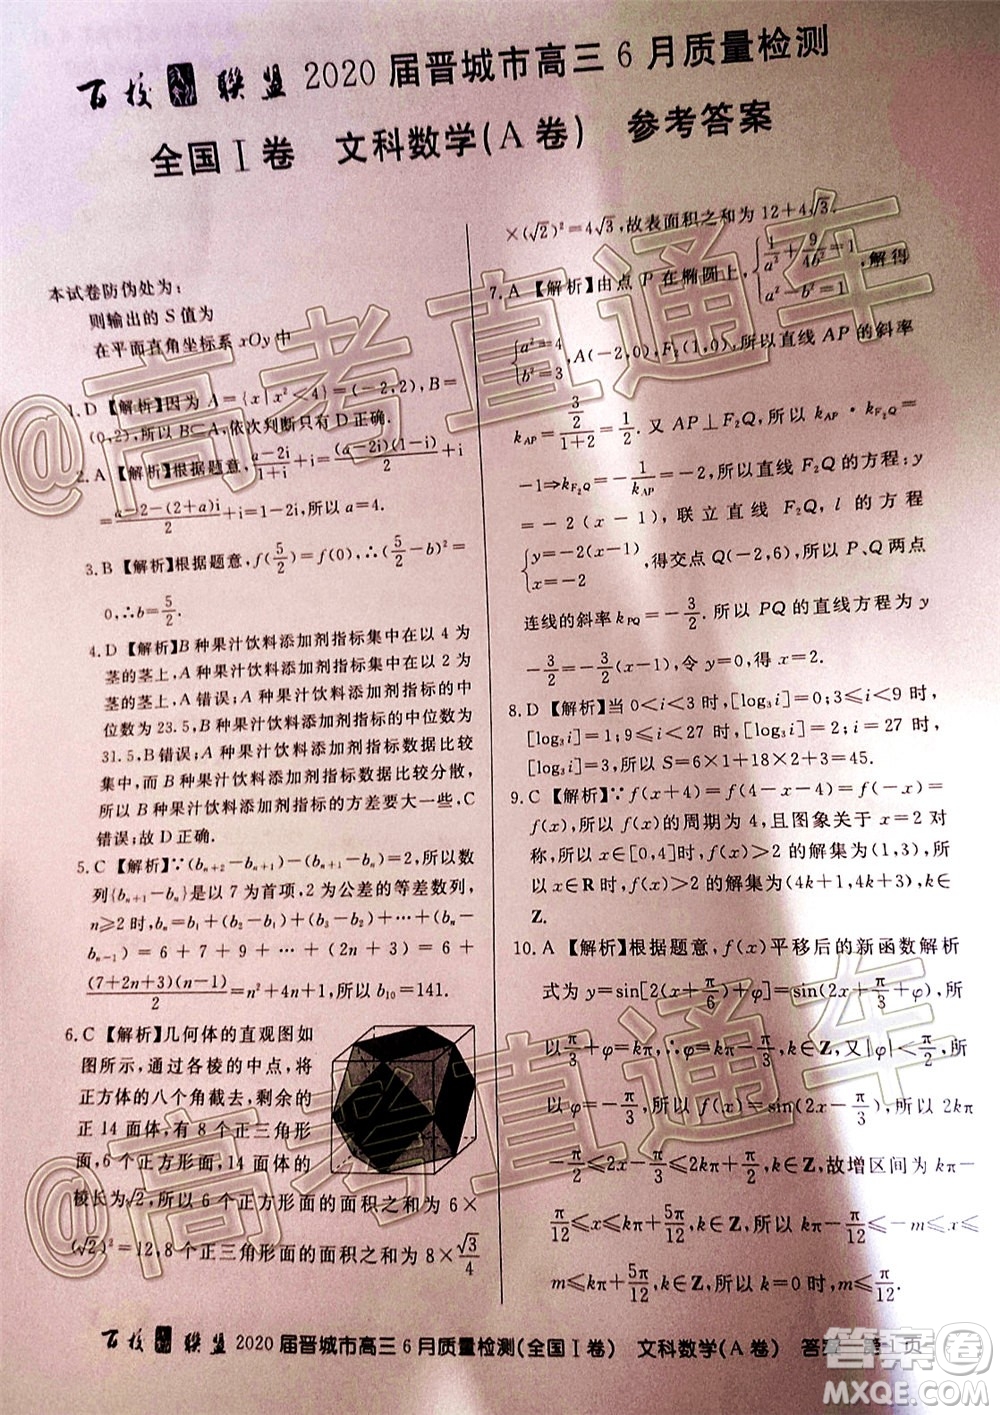 百校联盟 2020届晋城市高三6月质量检测
全国Ⅰ卷 文科数学(A卷) 参考答案
本试卷防伪处为:
则输出的S值为
在平面直角坐标系xOy中
1.D 【解析】因为A={x|x²<4}=(-2,2),B=
(0,2),所以B⊆A,依次判断只有D正确.
2.A 【解析】根据题意,(a-2i)/(1+i)+i=(a-2i)(1-i)/2+i
=(a-2-(2+a)i)/2+i=1-2i,所以a=4.
3.B 【解析】根据题意,f(5/2)=f(0),∴(5/2-b)²=
0,∴b=5/2.
4.D 【解析】B种果汁饮料添加剂指标集中在以4为
茎的茎上,A种果汁饮料添加剂指标集中在以2为
茎的茎上,A错误;A种果汁饮料添加剂指标的中
位数为23.5,B种果汁饮料添加剂指标的中位数为
31.5,B错误;A种果汁饮料添加剂指标数据比较
集中,而B种果汁饮料添加剂指标数据比较分散,
所以B种果汁饮料添加剂指标的方差要大一些,C
错误;故D正确.
5.C 【解析】∵(bₙ₊₂-bₙ₊₁)-(bₙ₊₁-bₙ)=2,所以数
列{bₙ₊₁-bₙ}是以7为首项,2为公差的等差数列,
n≥2时,bₙ=b₁+(b₂-b₁)+(b₃-b₂)+…+(bₙ-
bₙ₋₁)=6+7+9+…+(2n+3)=6+
(7+2n+3)(n-1)/2=n²+4n+1,所以b₁₀=141.
6.C 【解析】几何体的直观图如
图所示,通过各棱的中点,将
正方体的八个角截去,剩余的
正14面体,有8个正三角形
面,6个正方形面,14面体的
棱长为√2,所以6个正方形面的面积之和为6×
(√2)²=12,8个正三角形面的面积之和为8×√3/4
×(√2)²=4√3,故表面积之和为12+4√3.
7.A 【解析】由点P在椭圆上,{1/a²+9/4b²=1,a²-b²=1,解得
{a²=4,b²=3,A(-2,0),F₂(1,0),所以直线AP的斜率
k_AP=(3/2)/(1+2)=1/2.又AP⊥F₂Q,所以k_AP·k_F₂Q=
-1⇒k_F₂Q=-1/k_AP=-2,所以直线F₂Q的方程:y
=-2(x-1),联立直线F₂Q,l的方程
{y=-2(x-1),x=-2,得交点Q(-2,6),所以P、Q两点
连线的斜率k_PQ=-3/2.所以PQ的直线方程为y
-3/2=-3/2(x-1),令y=0,得x=2.
8.D 【解析】当0<i<3时,[log₃i]=0;3≤i<9时,
[log₃i]=1;9≤i<27时,[log₃i]=2;当27≤i≤29时,
[log₃i]=3,所以S=6×1+18×2+3=45.
9.C 【解析】∵f(x+4)=f(4-x-4)=f(-x)=
f(x),所以函数的周期为4,且图象关于x=2对
称,所以在[0,4]时,f(x)>2的解集为(1,3),所
以x∈R时,f(x)>2的解集为(4k+1,4k+3),k∈
Z.
10.A 【解析】根据题意,f(x)平移后的新函数解析
式为y=sin[2(x+π/6)+φ]=sin(2x+π/3+φ),所以
π/3+φ=kπ,∴φ=kπ-π/3,k∈Z,又|φ|<π/2,所
以φ=-π/3,所以f(x)=sin(2x-π/3),所以2kπ
-π/2≤2x-π/3≤2kπ+π/2,k∈Z,故增区间为kπ-
π/12≤x≤kπ+5π/12,k∈Z,所以-π/12≤-m≤x≤
m≤kπ+5π/12,k∈Z,所以k=0时,m≤π/12.
百校联盟 2020届晋城市高三6月质量检测(全国Ⅰ卷) 文科数学(A卷) 答案 第1页
@高考直通车
@高考直通车
答案圈
MXQE.COM